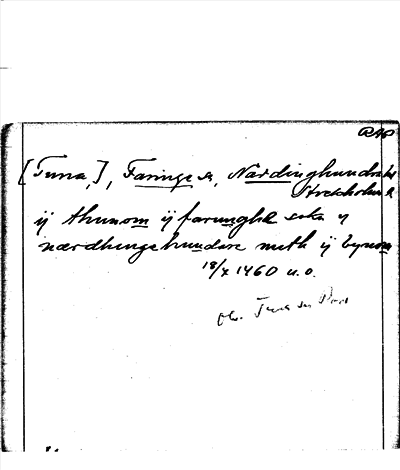 RAP
[Tuna,], Faringe sn, Närdinghundra hd
Stockholms l
ij thunom ij farunghe sokn ij
nærdhinge hundare meth ij bynom
18/7 1460 u.o.
Tuna sn